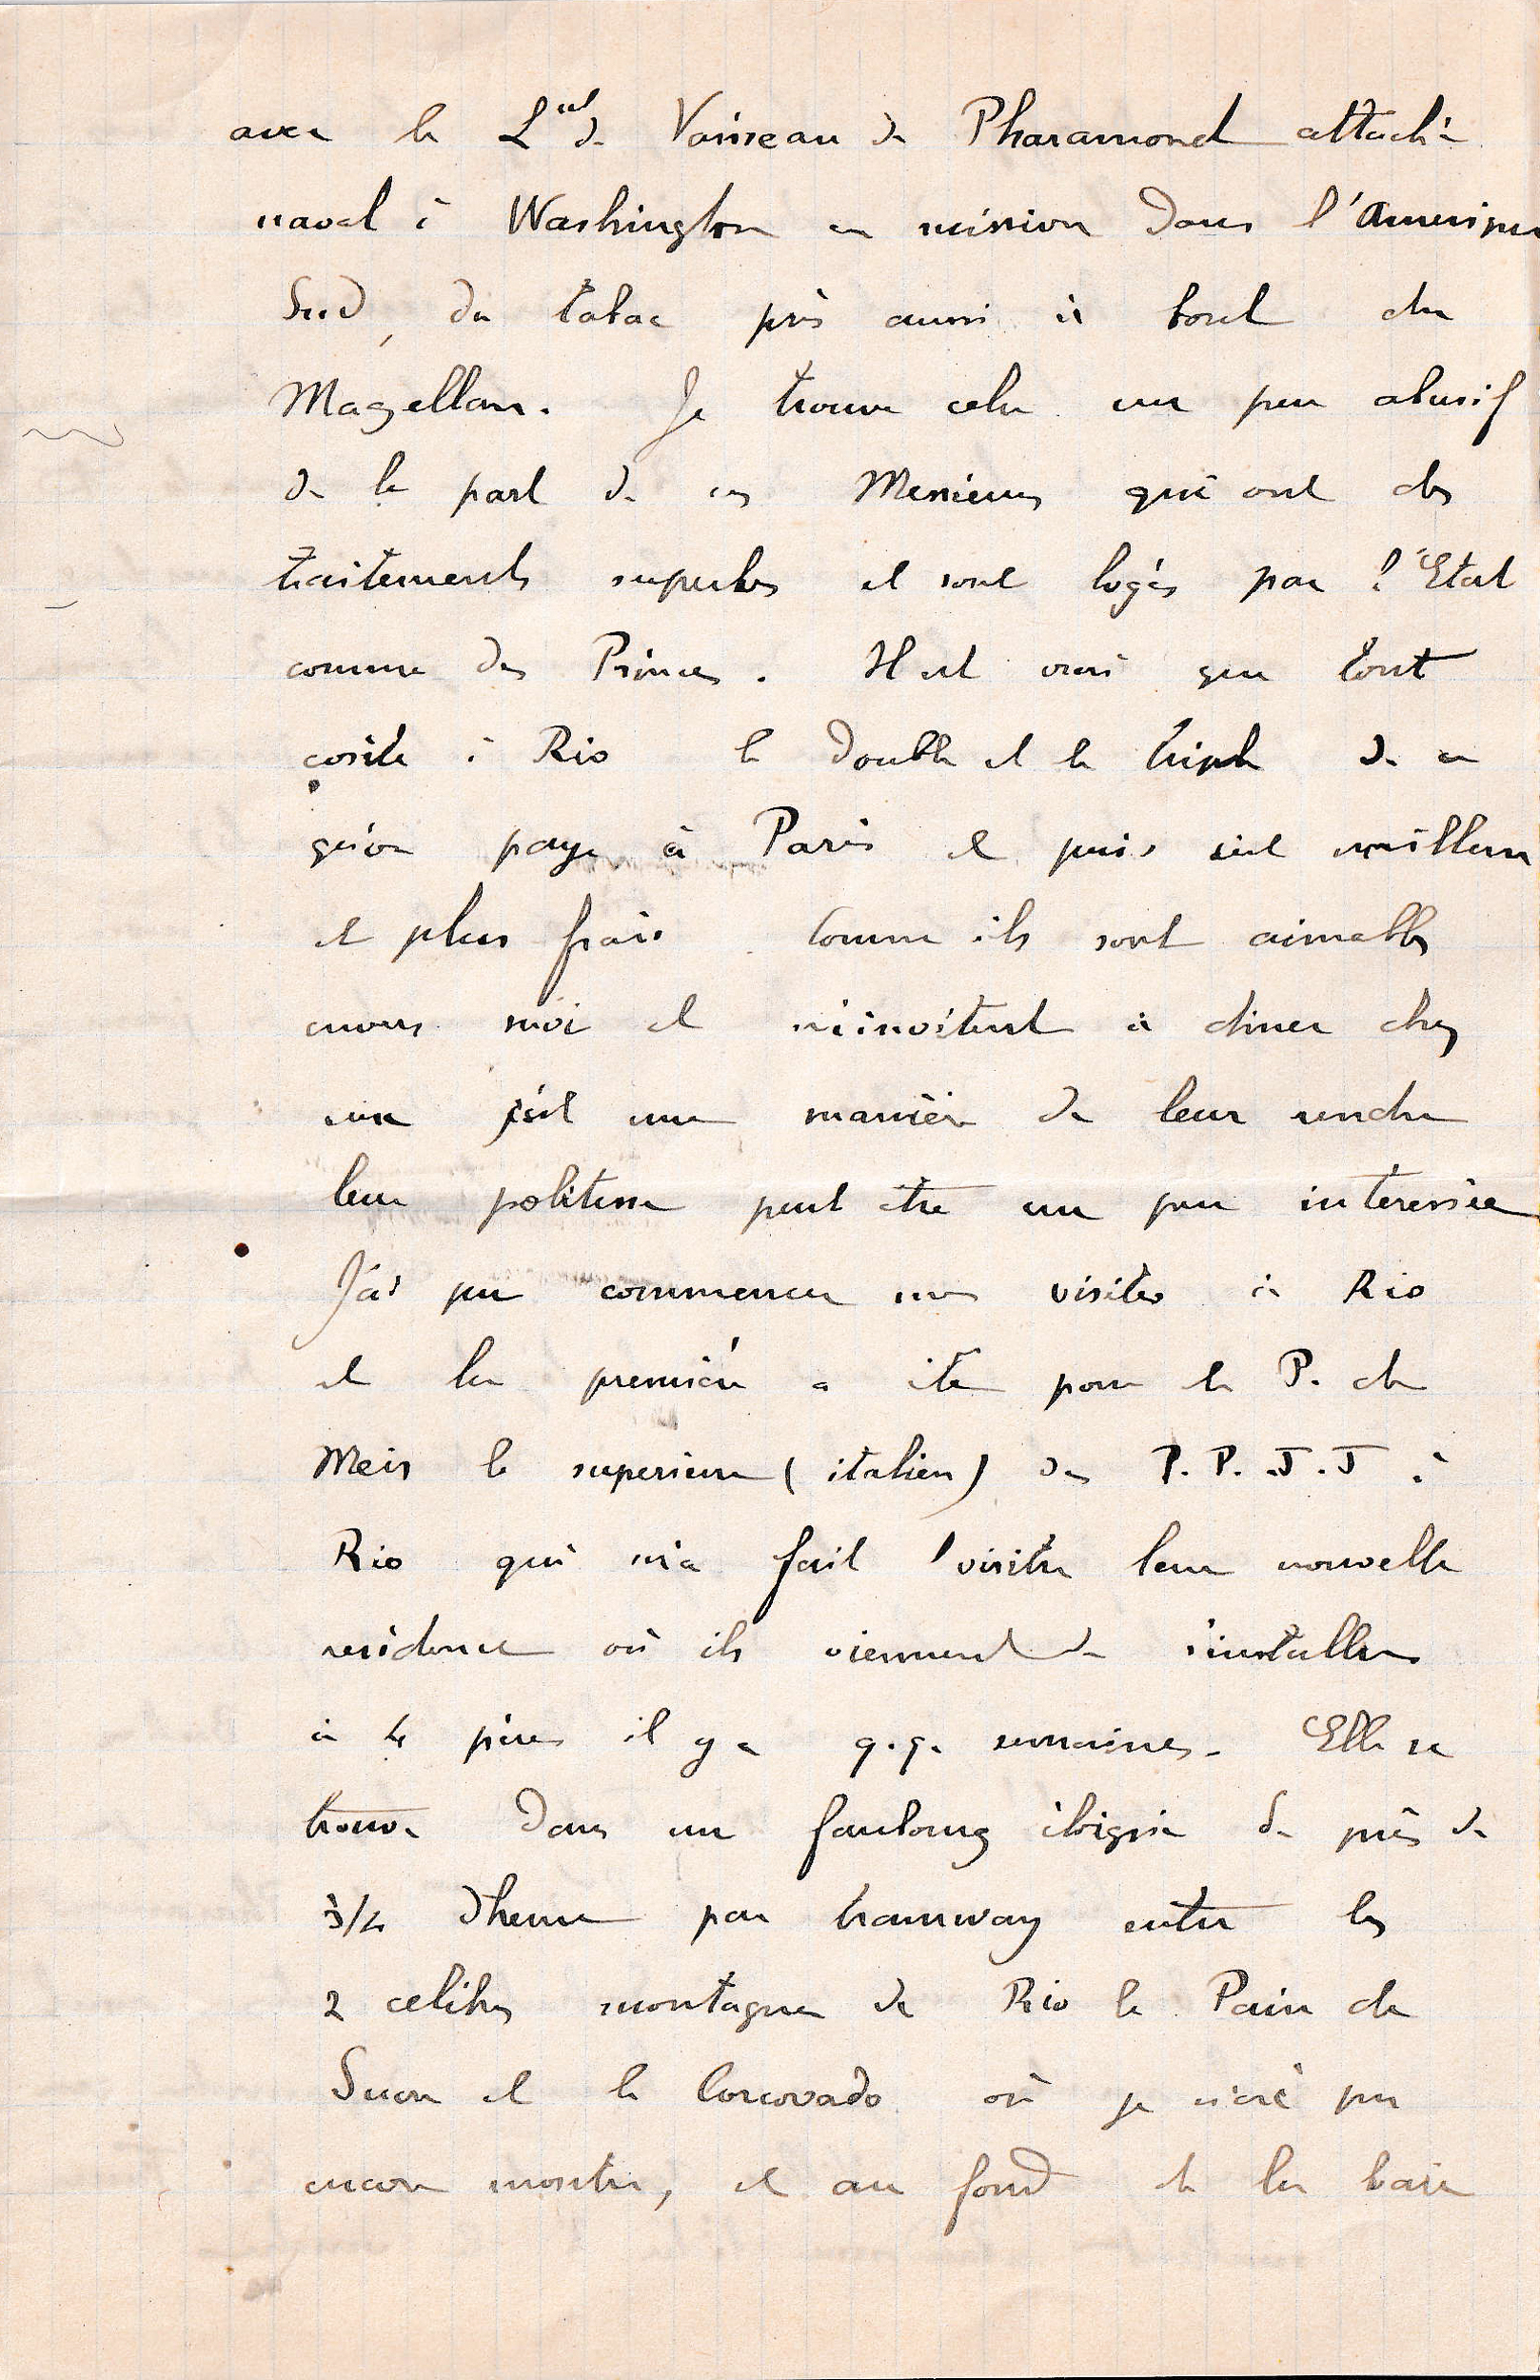 avec le Lnt de Vaisseau de Pharamond attaché
naval à Washington en mission dans l'Amerique
Sud, du tabac pris aussi à bord du
Magellan. Je trouve cela un peu abusif
de la part de ces Messieurs qui ont des
traitements superbes et sont logés par l'Etat
comme des Princes. Il est vrai que tout
coûte à Rio le double et le triple de ce
qu'on paye à Paris et puis c'est meilleur
et plus frais. Comme ils sont aimables
envers moi et m'invitent à diner chez
eux c'est une manière de leur rendre
leur politesse peut etre un peu interessée
J'ai pu commencer mes visites à Rio
et la première a été pour le P. de
Meis le superieur (italien) des P.P.J.J à
Rio qui m'a fait visiter leur nouvelle
residence où ils viennent de s'installer
à 4 pères il y a q.q. semaines. Elle se
trouve dans un faubourg éloigné de près de
3/4 d'heure par tramway entre les
2 celèbres montagnes de Rio le Pain de
Sucre et le Corcovado où je n'ai pu
encore monter, et au fond de la baie